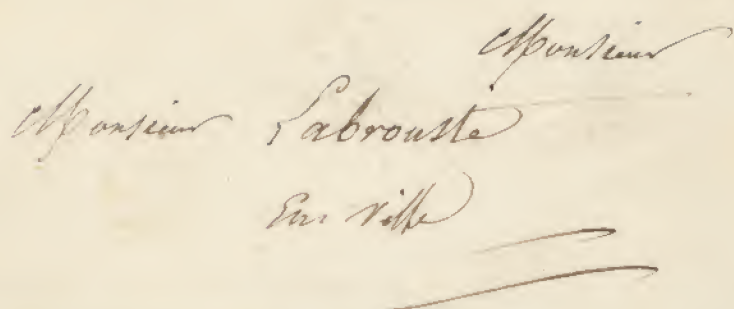 Monsieur
Monsieur Labrouste
En ville